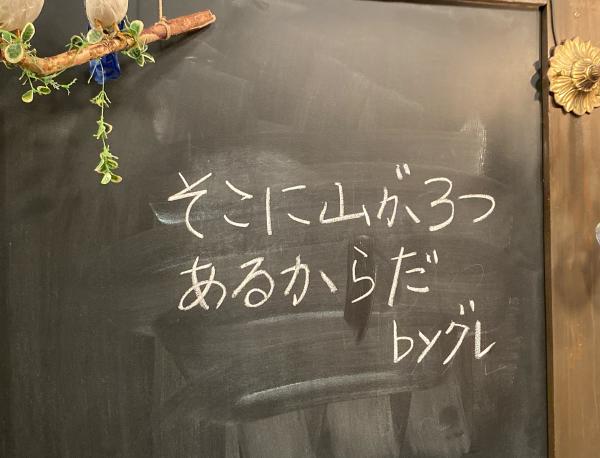 そこに山が3つ
あるからだ
byグレ